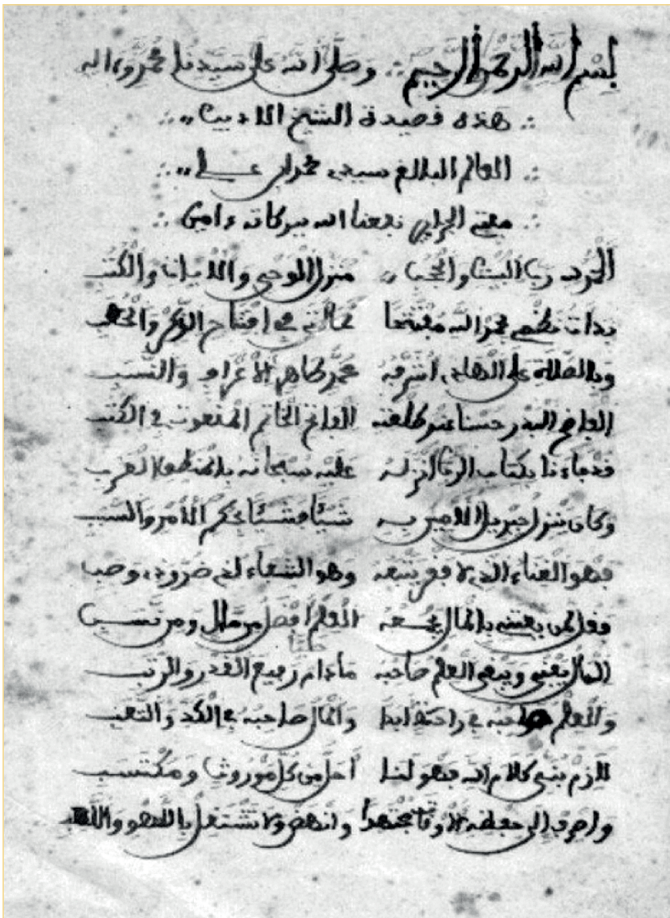 بسم الله الرحمن الرحيم وصلى الله على سيدنا محمد وآله
هذه قصيدة الشيخ الاديب
العالم البالغ سيدي محمد ابن علي
مفتي الجزاير نفعنا الله ببركاته ءامين
الحمد رب والحجب منزل الوحي والايات والكتب
بدات بحمد الله مفتتحا في افتتاح الذكر والخطب
وبالصلاة على الهادي اشرفه محمد طاهر الاعراف والنسب
البدر حسنا عند طلعته الفاتح الخاتم المنعوت في الكتب
قد جاءنا بكتاب انزله عليه سبحانه بالمنطق العرب
وكان ينزل جبريل الامين به شيئا فشيئا بحكم الامر والسبب
فهو الغناء الذي لا فقر يتبعه وهو الشفاء لذي ضر وذي وصب
وقل لمن يعتني بالمال يجمعه العلم افضل من مال ومن نسب
المال يفنى ويبقى العلم صاحبه مادام رفيع القدر والرتب
والعلم صاحبه في راحة ابدا والمال صاحبه في الكد والتعب
لازم بني كلام الله فهو لنا اجل من كل موروث ومكتسب
واصرف الى حفظه الاوقات مجتهدا وانهض ولا تشتغل باللهو واللعب